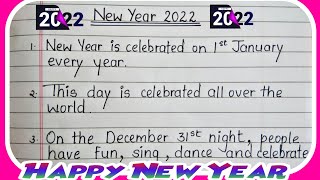 2022 New Year 2022 2022
1. New Year is celebrated on 1st January
every year.
2. This day is celebrated all over the
world.
3. On the December 31st night, people
have fun, sing, dance and celebrate
HAPPY NEW YEAR